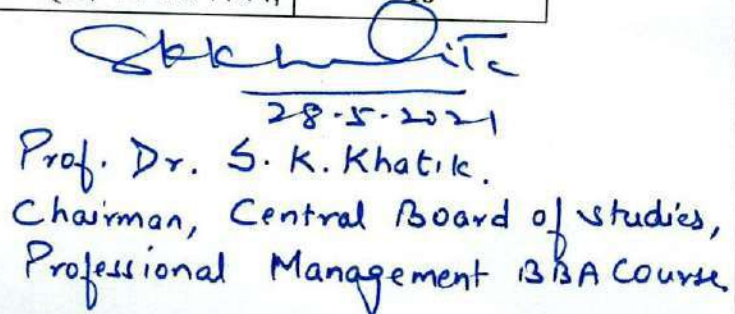 28-5-2021
Prof. Dr. S. K. Khatik.
Chairman, Central Board of studies,
Professional Management BBA Course.